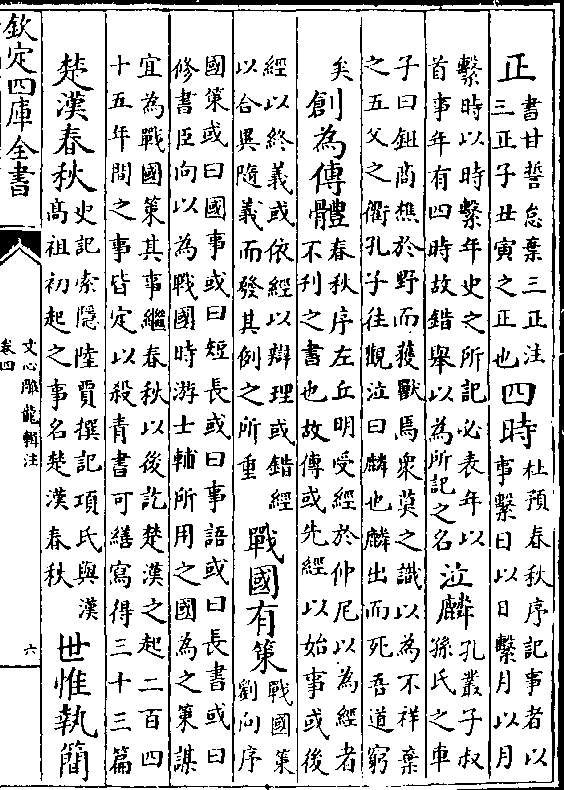 正
書甘誓怠棄三正注
三正子丑寅之正也
四時
杜預春秋序記事者以
事繫日以日繫月以月
繫時以時繫年史之所記必表年以
首事年有四時故錯舉以為所記之名
泣麟
孔叢子叔
孫氏之車
子曰鉏商樵於野而獲獸焉衆莫之識以為不祥棄
之五父之衢孔子往觀泣曰麟也麟出而死吾道窮
矣
創為傳體
春秋序左丘明受經於仲尼以為經者
不刊之書也故傳或先經以始事或後
經以終義或依經以辯理或錯經
以合異隨義而發其例之所重
戰國有策
戰國策
劉向序
國策或曰國事或曰短長或曰事語或曰長書或曰
修書臣向以為戰國時游士輔所用之國為之策謀
宜為戰國策其事繼春秋以後訖楚漢之起二百四
十五年間之事皆定以殺青書可繕寫得三十三篇
楚漢春秋
史記索隱陸賈撰記項氏與漢
高祖初起之事名楚漢春秋
世惟執簡
欽定四庫全書
文心雕龍輯注
卷四
六